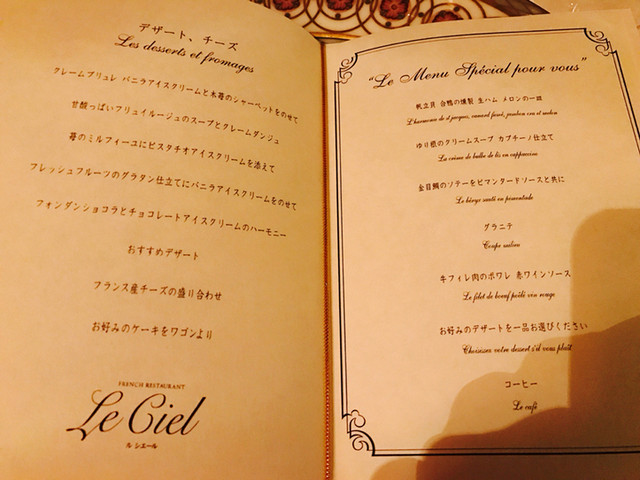 デザート、チーズ
Les desserts et fromages
クレームブリュレ バニラアイスクリームと木苺のシャーベットをのせて
甘酸っぱいフリュイルージュのスープとクレームダンジュ
苺のミルフィーユにピスタチオアイスクリームを添えて
フレッシュフルーツのグラタン仕立てにバニラアイスクリームをのせて
フォンダンショコラとチョコレートアイスクリームのハーモニー
おすすめデザート
フランス産チーズの盛り合わせ
お好みのケーキをワゴンより
FRENCH RESTAURANT
Le Ciel
ル シエール
"Le Menu Spécial pour vous"
帆立貝 合鴨の燻製 生ハム メロンの一皿
L'harmonie de st jacques, canard fumé, jambon cru et melon
ゆり根のクリームスープ カプチーノ仕立て
La crème de bulbe de lis en cappuccino
金目鯛のソテーをピマンタードソースと共に
Le béryx sauté en pimentade
グラニテ
Coupe
牛フィレ肉のポワレ 赤ワインソース
Le filet de bœuf poêlé vin rouge
お好みのデザートを一品お選びください
Choisissez votre dessert s'il vous plaît
コーヒー
Le café